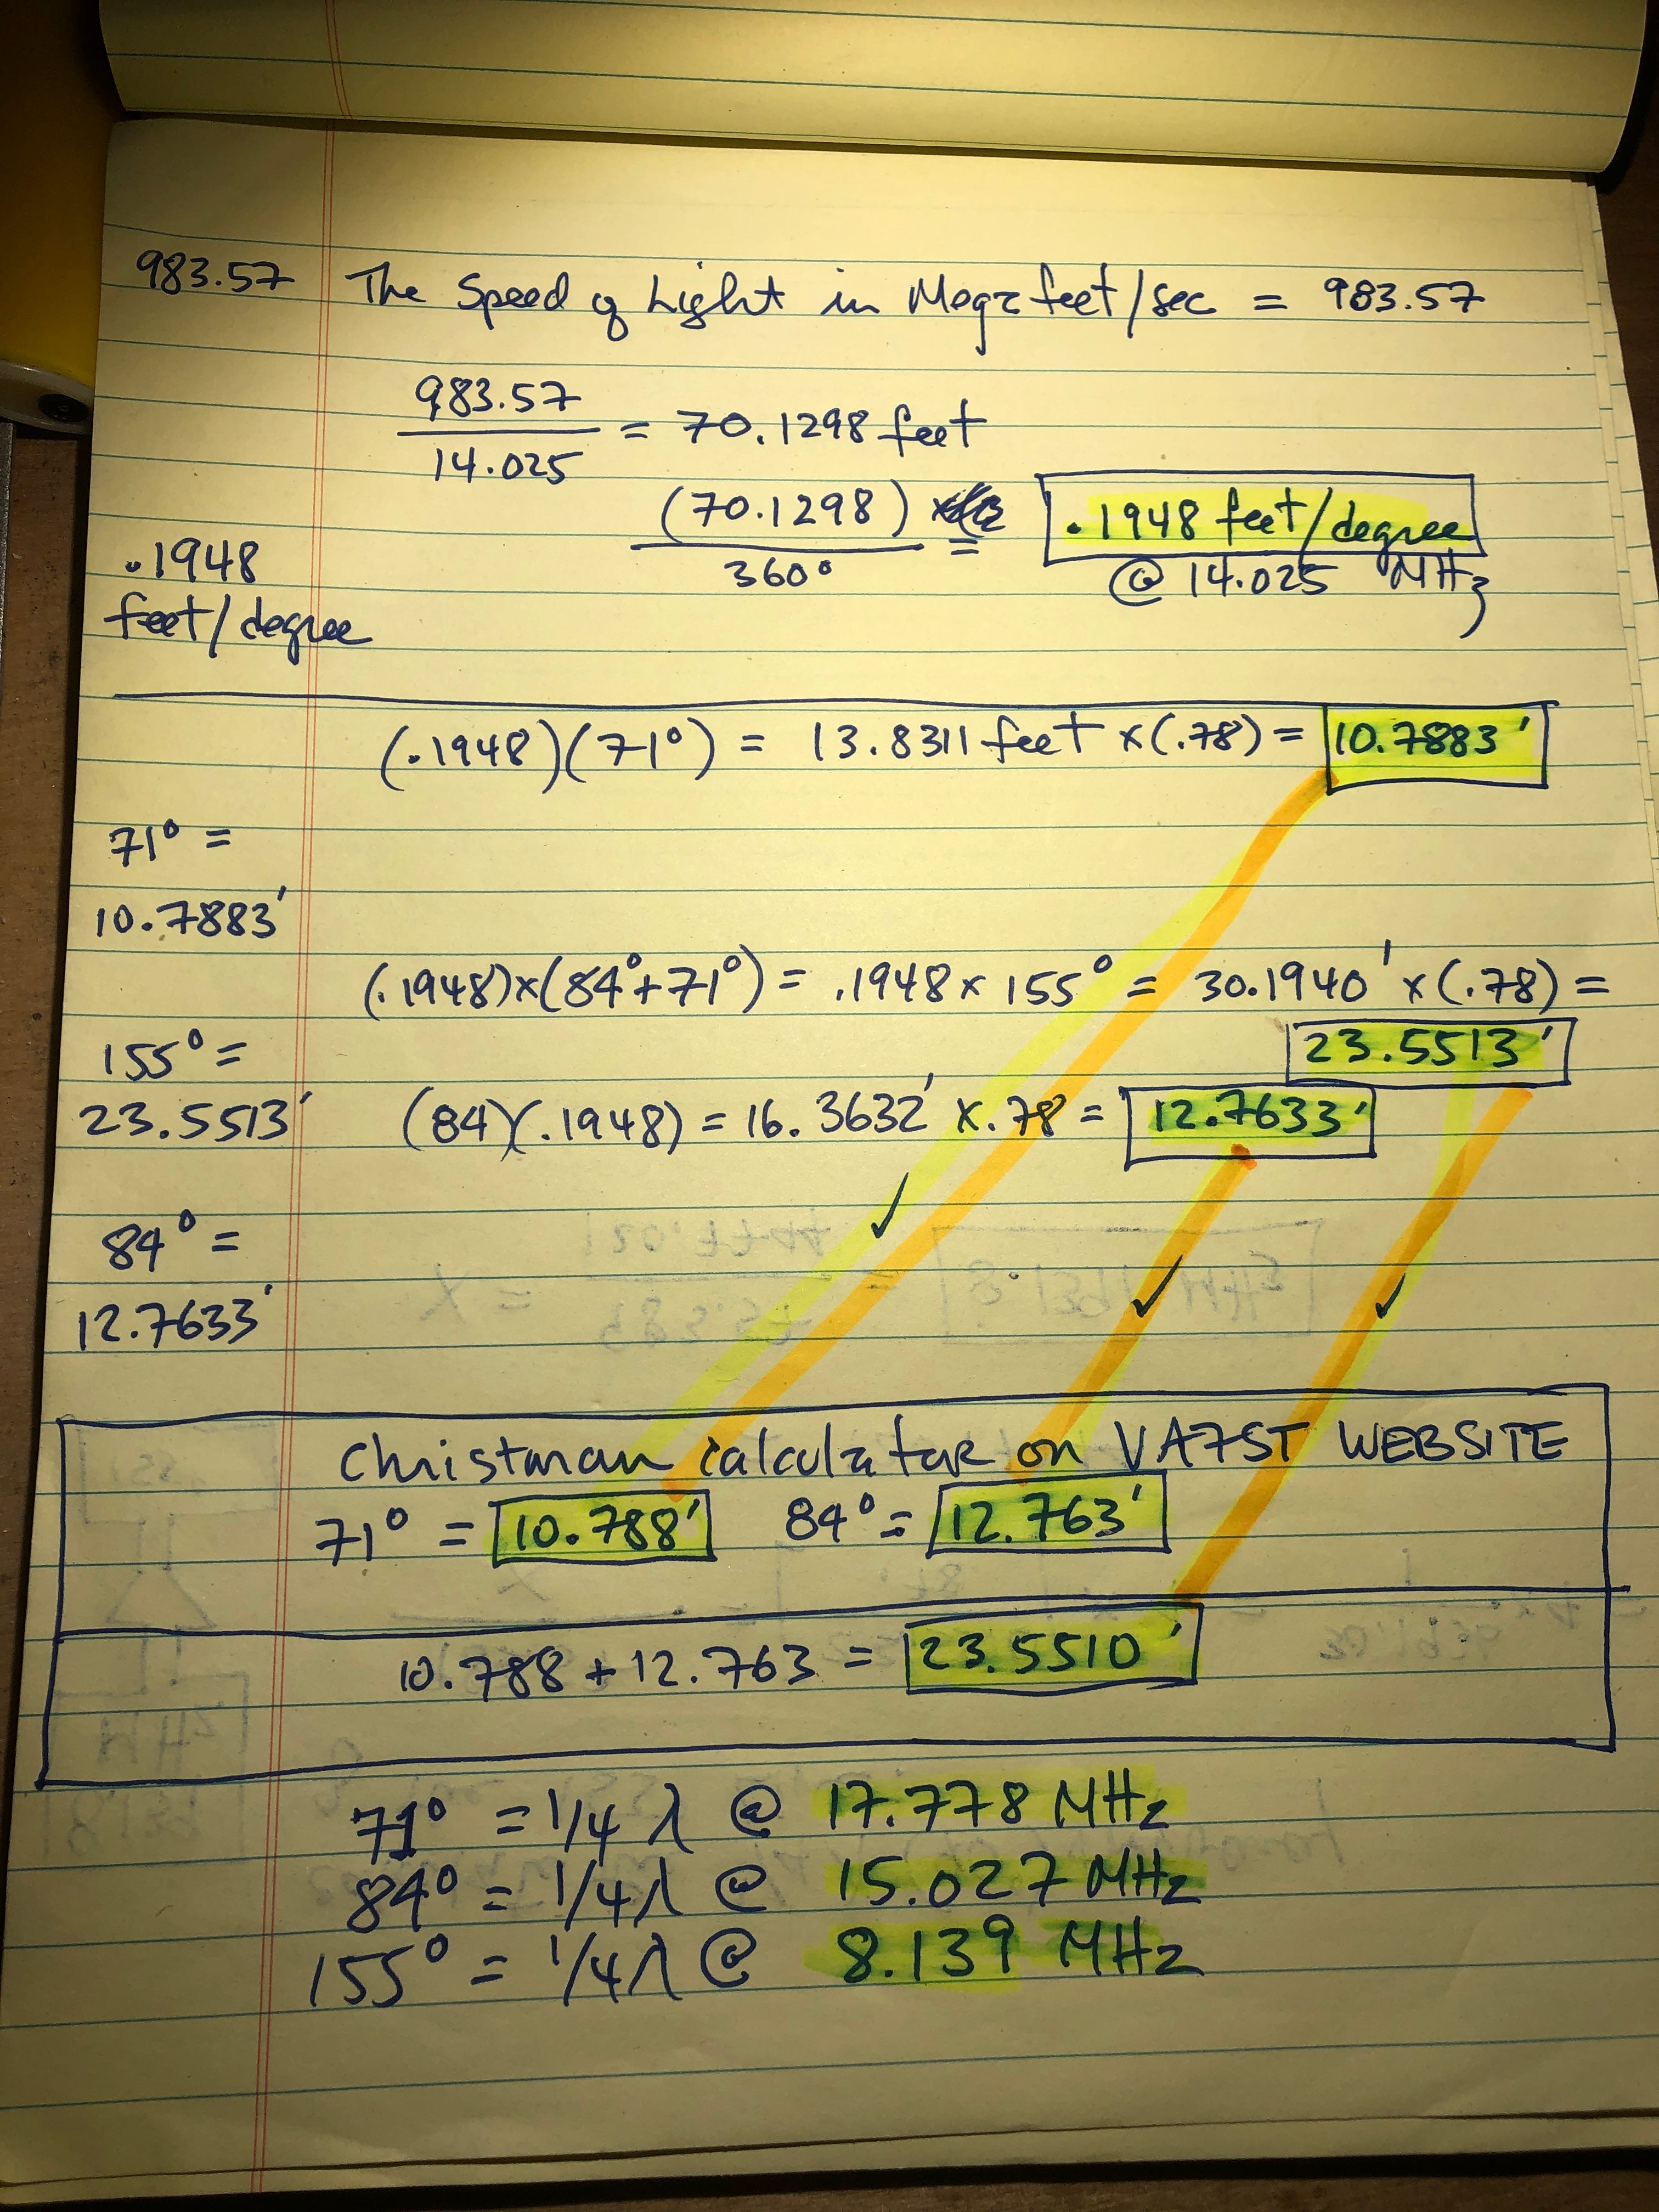 983.57 The Speed of Light in Mega feet/sec = 983.57
983.57
14.025
= 70.1298 feet
(70.1298)
360°
= .1948 feet/degree
@ 14.025 MHz
.1948
feet/degree
(.1948)(71°) = 13.8311 feet x(.78) = 10.7883'
71° =
10.7883'
(.1948)x(84°+71°) = .1948 x 155° = 30.1940' x (.78) =
23.5513'
155° =
23.5513'
(84)(.1948) = 16.3632' x .78 = 12.7633'
84° =
12.7633'
Christman calculator on VA7ST WEBSITE
71° = 10.788' 84° = 12.763'
10.788 + 12.763 = 23.5510'
71° = 1/4 λ @ 17.778 MHz
84° = 1/4 λ @ 15.027 MHz
155° = 1/4 λ @ 8.139 MHz